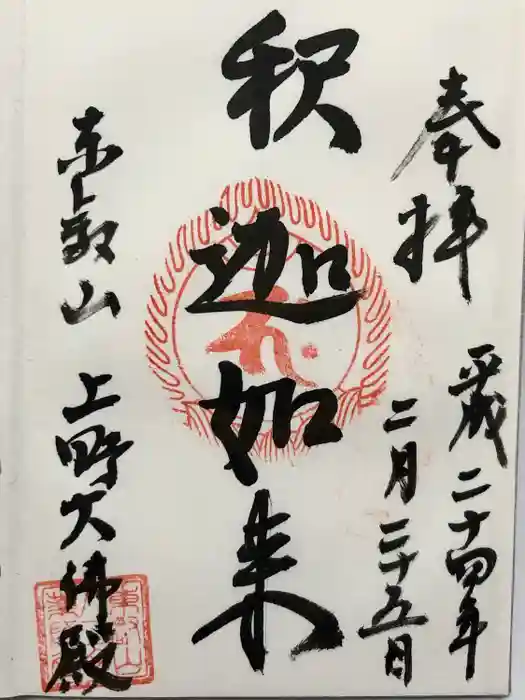 奉拝
平成二十四年
二月二十五日
釈迦如来
东叡山 上野大佛殿